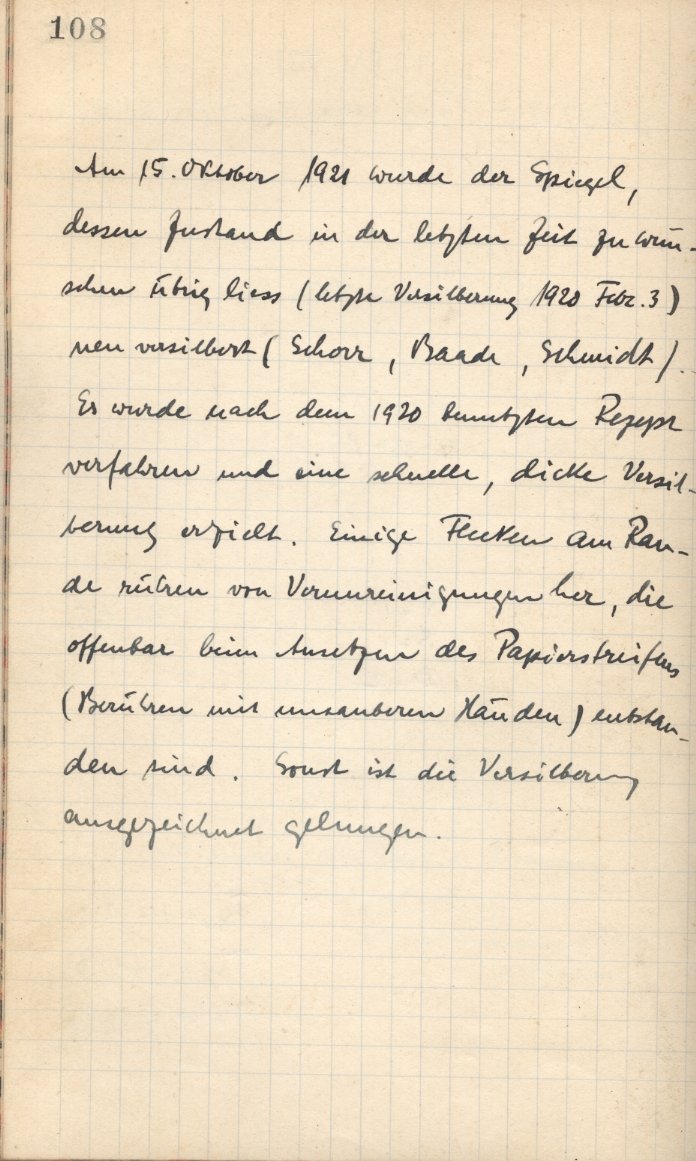 108
Am 15. Oktober 1921 wurde der Spiegel,
dessen Zustand in der letzten Zeit zu wün-
schen übrig liess (letzte Versilberung 1920 Febr. 3)
neu versilbert (Schorr, Baade, Schmidt).
Es wurde nach dem 1920 benutzten Rezept
verfahren und eine schnelle, dicke Versil-
berung erzielt. Einige Flecken am Ran-
de rühren von Verunreinigungen her, die
offenbar beim Ansetzen des Papierstreifens
(Berühren mit unsauberen Händen) entstan-
den sind. Sonst ist die Versilberung
ausgezeichnet gelungen.